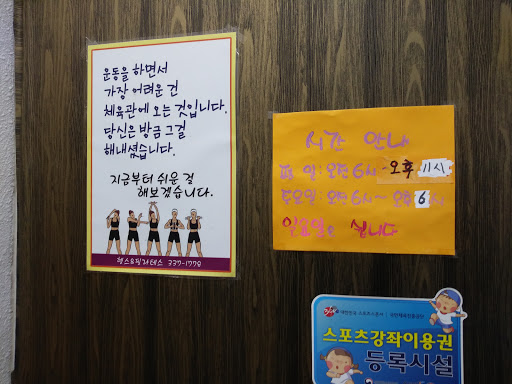 운동을 하면서
가장 어려운 건
체육관에 오는 것입니다.
당신은 방금 그걸
해내셨습니다.
지금부터 쉬운 걸
해보겠습니다.
헬스&필라테스 337-1778
시간 안내
평일: 오전 6시 - 오후 11시
토요일: 오전 6시 ~ 오후 6시
일요일은 쉽니다
대한민국 스포츠
국민체육진흥공단
스포츠강좌이용권
등록시설